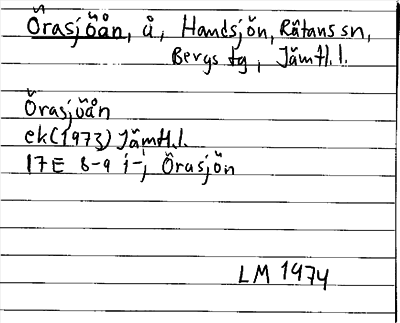 Örasjöån, å, Handsjön, Rätans sn,
Bergs tg, Jämtl.l.
Örasjöån
ek(1973) Jämtl.l.
17E 8-9 i-j Örasjön
LM 1974